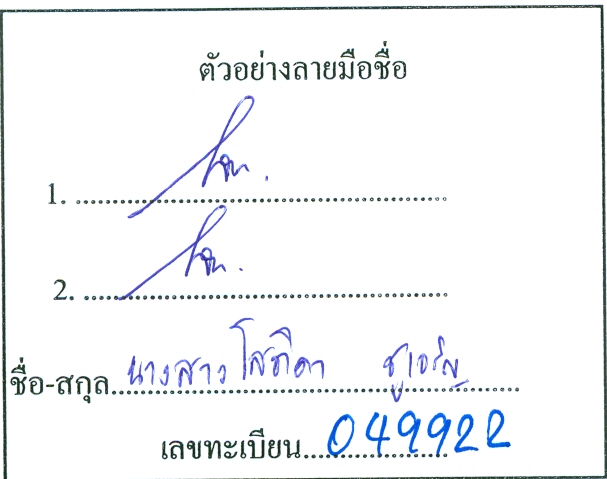 ตัวอย่างลายมือชื่อ
1. ........................................
2. ........................................
ชื่อ-สกุล นางสาว โสภิดา ชูเจริญ
เลขทะเบียน 049922